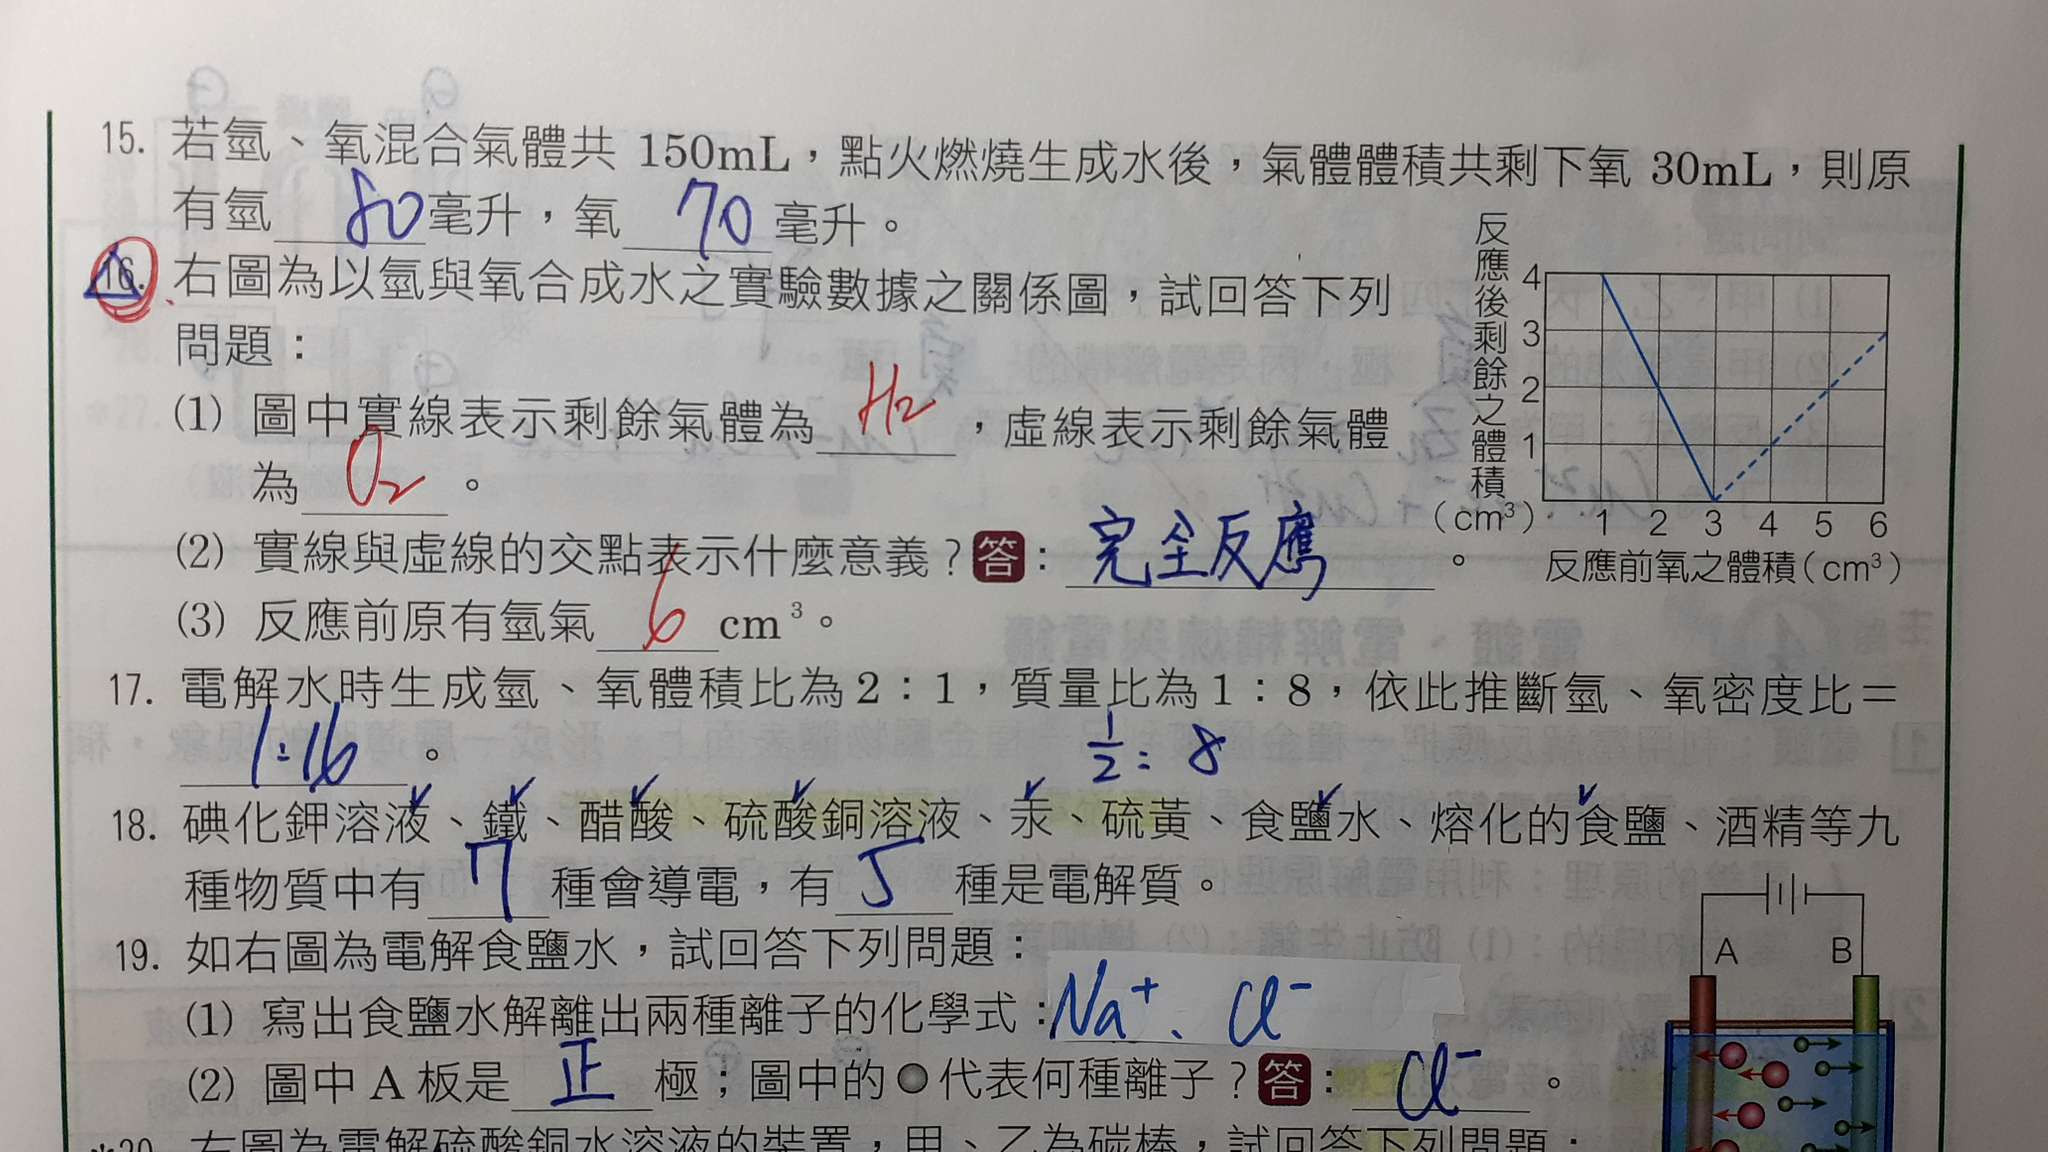 15. 若氫、氧混合氣體共 150mL，點火燃燒生成水後，氣體體積共剩下氧 30mL，則原
有氫 80 毫升，氧 70 毫升。
16. 右圖為以氫與氧合成水之實驗數據之關係圖，試回答下列
問題：
(1) 圖中實線表示剩餘氣體為 H₂ ，虛線表示剩餘氣體
為 O₂ 。
(2) 實線與虛線的交點表示什麼意義？答：完全反應。
(3) 反應前原有氫氣 6 cm³。
反應後剩餘之體積
(cm³)
4
3
2
1
1 2 3 4 5 6
反應前氧之體積(cm³)
17. 電解水時生成氫、氧體積比為2：1，質量比為1：8，依此推斷氫、氧密度比＝
1:16 。
1/2 : 8
18. 碘化鉀溶液、鐵、醋酸、硫酸銅溶液、汞、硫黃、食鹽水、熔化的食鹽、酒精等九
種物質中有 7 種會導電，有 5 種是電解質。
19. 如右圖為電解食鹽水，試回答下列問題：
(1) 寫出食鹽水解離出兩種離子的化學式：Na⁺、Cl⁻
(2) 圖中 A 板是 正 極；圖中的 代表何種離子？答：Cl⁻ 。
A B
*20. 右圖為電解硫酸銅水溶液的裝置，甲、乙為碳棒，試回答下列問題：